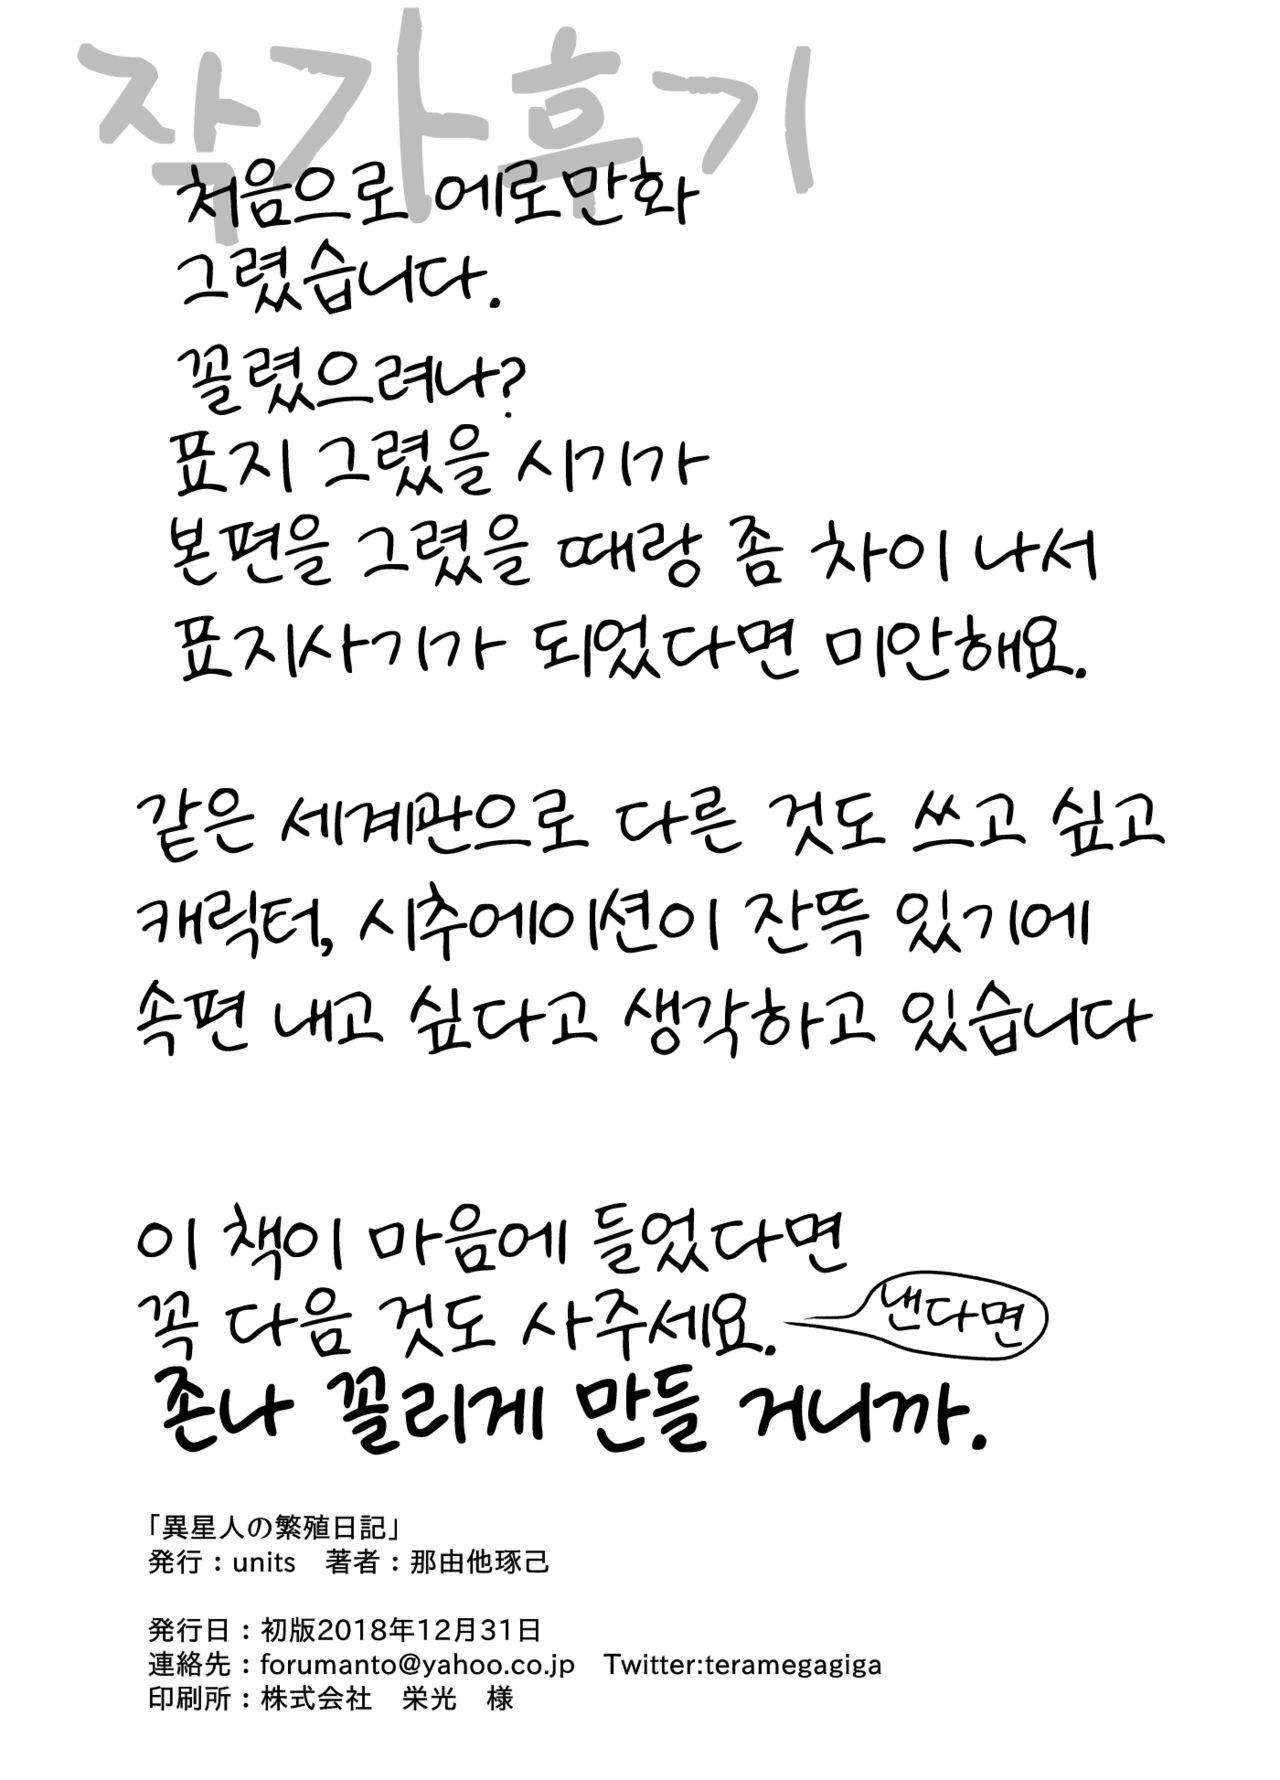 작가후기
처음으로 에로만화
그렸습니다.
꼴렸으려나?
표지 그렸을 시기가
본편을 그렸을 때랑 좀 차이 나서
표지사기가 되었다면 미안해요.
같은 세계관으로 다른 것도 쓰고 싶고
캐릭터, 시추에이션이 잔뜩 있기에
속편 내고 싶다고 생각하고 있습니다
이 책이 마음에 들었다면
꼭 다음 것도 사주세요.
낸다면
존나 꼴리게 만들 거니까.
「異星人の繁殖日記」
発行：units　著者：那由他琢己
発行日：初版2018年12月31日
連絡先：forumanto@yahoo.co.jp　Twitter:teramegagiga
印刷所：株式会社　栄光　様